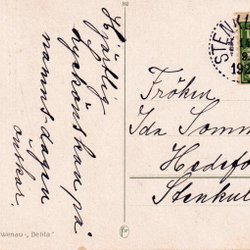 Hjärtlig
lyckönskan på
namns-dagen
önskar.
Fröken
Ida Somm
Hedefo
Stenkul
STEN
19
Wenau-„Delila"